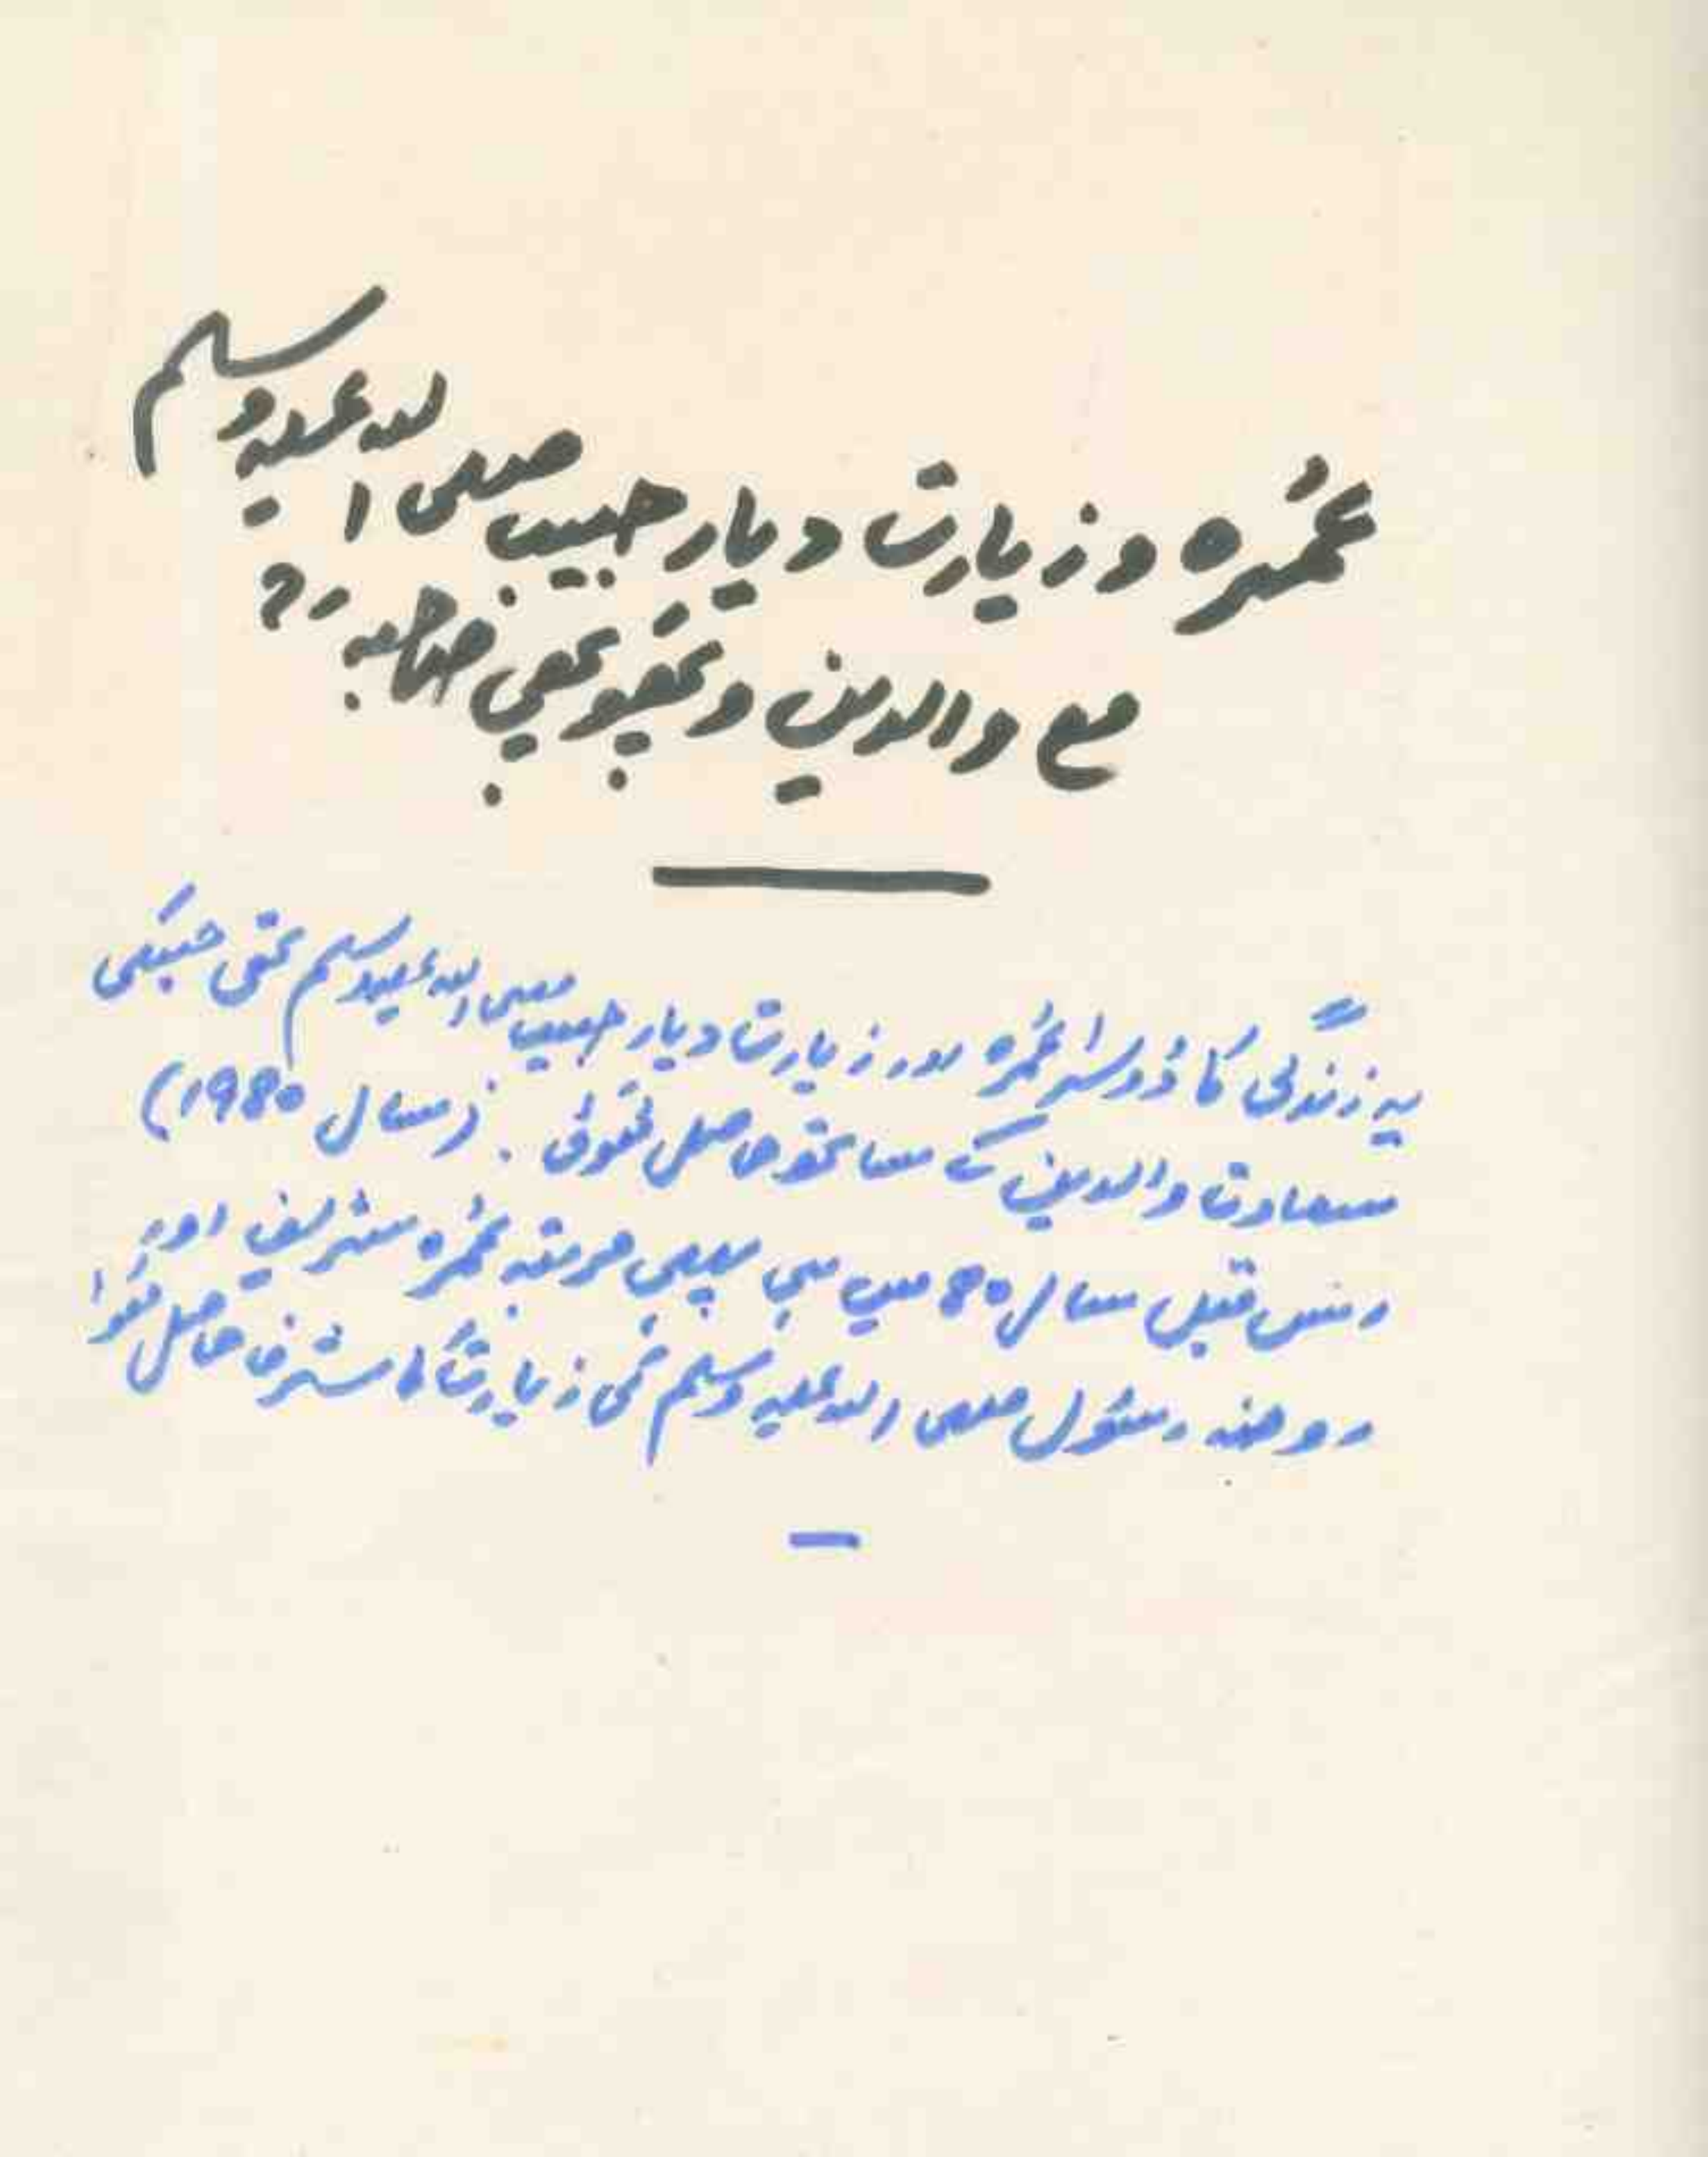 عُمرہ و زیارت دیار حبیب صلی اللہ علیہ وسلم
مع والدین و پھوپھی صاحبہ رح
یہ زندگی کا دُوسرا عُمرہ اور زیارت دیار حبیب صلی اللہ علیہ وسلم تھی جسکی
سعادت والدین کے ساتھ حاصل ہُوئی . (سال 1980)
اس قبل سال 80 میں ہی پہلی مرتبہ عُمرہ شریف اور
روضہ رسُول صلی اللہ علیہ وسلم کی زیارت کا شرف حاصل ہُوا